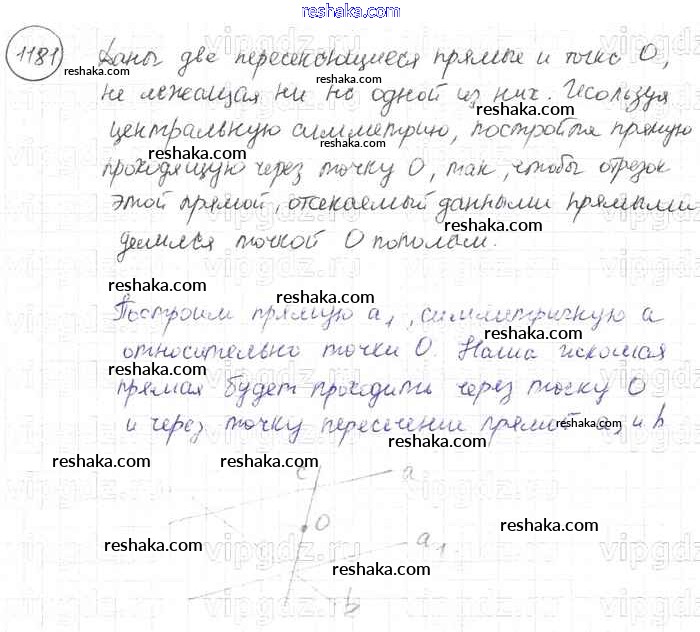 reshaka.com
1181 Даны две пересекающиеся прямые и точка O,
reshaka.com reshaka.com reshaka.com
не лежащая ни на одной из них. Используя
reshaka.com
центральную симметрию, постройте прямую
reshaka.com reshaka.com
проходящую через точку O, так, чтобы отрезок
reshaka.com
этой прямой, отсекаемый данными прямыми
reshaka.com
делился точкой O пополам.
reshaka.com
reshaka.com
Построим прямую a1, симметричную a
reshaka.com
относительно точки O. Наша искомая
reshaka.com
прямая будет проходить через точку O
и через точку пересечения прямой a1 и b
reshaka.com
reshaka.com reshaka.com
c a
O
reshaka.com
reshaka.com a1
reshaka.com
b